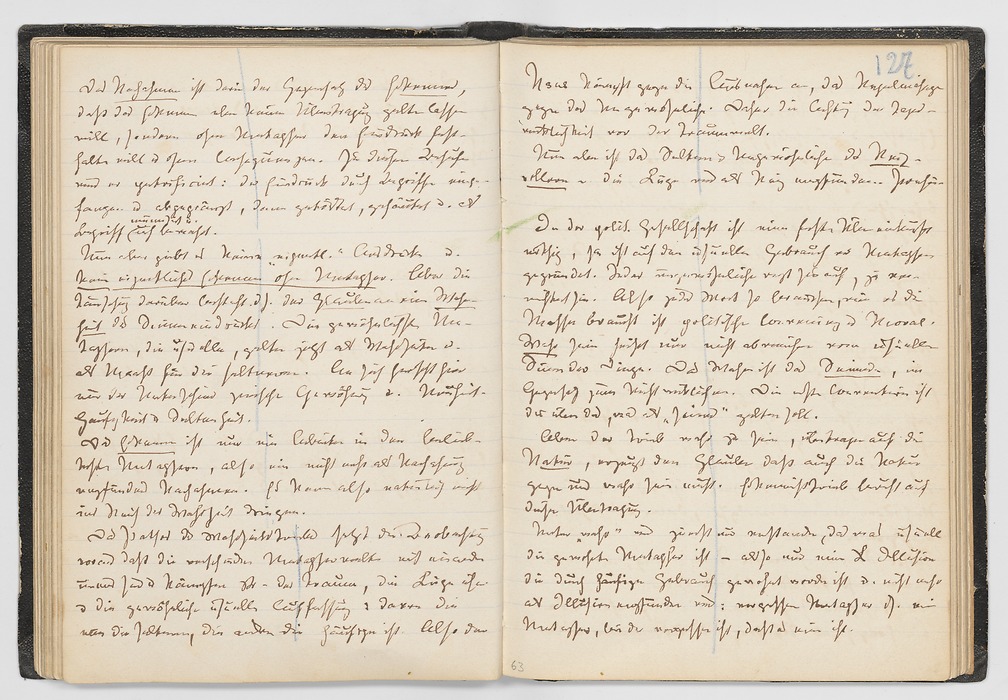 Das Nachahmen ist darin der Gegensatz des Erkennens,
daß das Erkennen eben keine Übertragung gelten lassen
will, sondern ohne Metapher den Eindruck fest-
halten will u. ohne Consequenzen. Zu diesem Behufe
wird er petrificirt: der Eindruck durch Begriffe einge-
fangen u. abgegränzt, dann getödtet, gehäutet u. als
Begriff mumisirt u. aufbewahrt.
Nun aber giebt es keine „eigentl.“ Ausdrücke u.
kein eigentliches Erkennen ohne Metapher. Aber die
Täuschung darüber besteht, d.h. der Glaube an eine Wahr-
heit des Sinneneindrucks. Die gewöhnlichsten Me-
taphern, die usuellen, gelten jetzt als Wahrheiten u.
als Maaß für die seltneren. An sich herrscht hier
nur der Unterschied zwischen Gewöhnung u. Neuheit,
Häufigkeit u. Seltenheit.
Das Erkennen ist nur ein Arbeiten in den belieb-
testen Metaphern, also ein nicht mehr als Nachahmung
empfundenes Nachahmen. Es kann also natürlich nicht
ins Reich der Wahrheit dringen.
Das Pathos des Wahrheitstriebes setzt die Beobachtung
voraus daß die verschiednen Metapherwelten
uneins sind u. kämpfen zB. der Traum, die Lüge
u die gewöhnliche usuelle Auffassung: davon die
eine die seltnere, die andre die häufigere ist. Also der
127
Usus kämpft gegen die Ausnahme an, das Regelmäßige
gegen das Ungewöhnliche. Daher die Achtung der Tages-
wirklichkeit vor der Traumwelt.
Nun aber ist das Seltene u Ungewöhnliche das Reiz-
vollere – die Lüge wird als Reiz empfunden. Poesie.
In der polit. Gesellschaft ist eine feste Übereinkunft
nöthig, sie ist auf den usuellen Gebrauch von Metaphern
gegründet. Jeder ungewöhnliche regt sie auf, ja ver-
nichtet sie. Also jedes Wort so brauchen, wie es die
Masse braucht ist politische Convenienz u Moral.
Wahr sein heißt nur nicht abweichen vom usuellen
Sinn der Dinge. Das Wahre ist das Seiende, im
Gegensatz zum Nichtwirklichen. Die erste Convention ist
die über das, was als „seiend“ gelten soll.
Aber der Trieb wahr zu sein, übertragen auf die
Natur, erzeugt den Glauben daß auch die Natur
gegen uns wahr sein müsse. Erkenntnißtrieb beruht auf
dieser Übertragung.
Unter „wahr“ wird zuerst nur verstanden, das was usuell
die gewohnte Metapher ist – also nur eine Illusion
die durch häufigen Gebrauch gewohnt worden ist u. nicht mehr
als Illusion empfunden wird: vergessene Metapher d.h. eine
Metapher, bei der vergessen ist, daß sie eine ist.
63